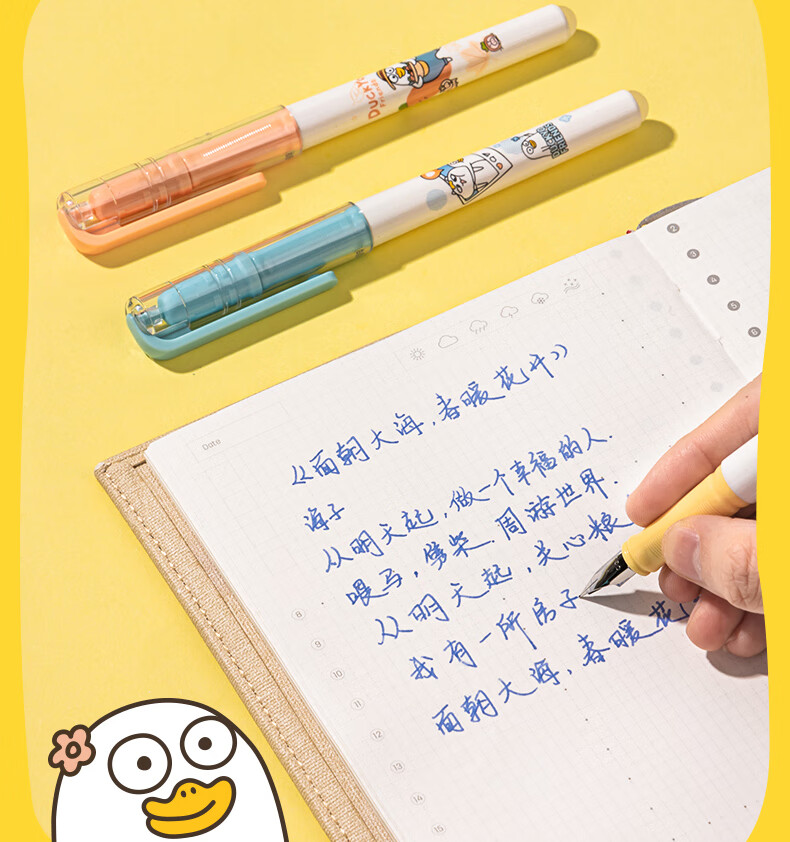 DUCKYO
FRIENDS
DUCKYO
FRIENDS
2
3
4
5
6
Date
《面朝大海,春暖花开》
海子
从明天起,做一个幸福的人.
喂马,劈柴.周游世界.
从明天起,关心粮
我有一所房子
面朝大海,春暖花
8
9
10
11
12
13
14
15